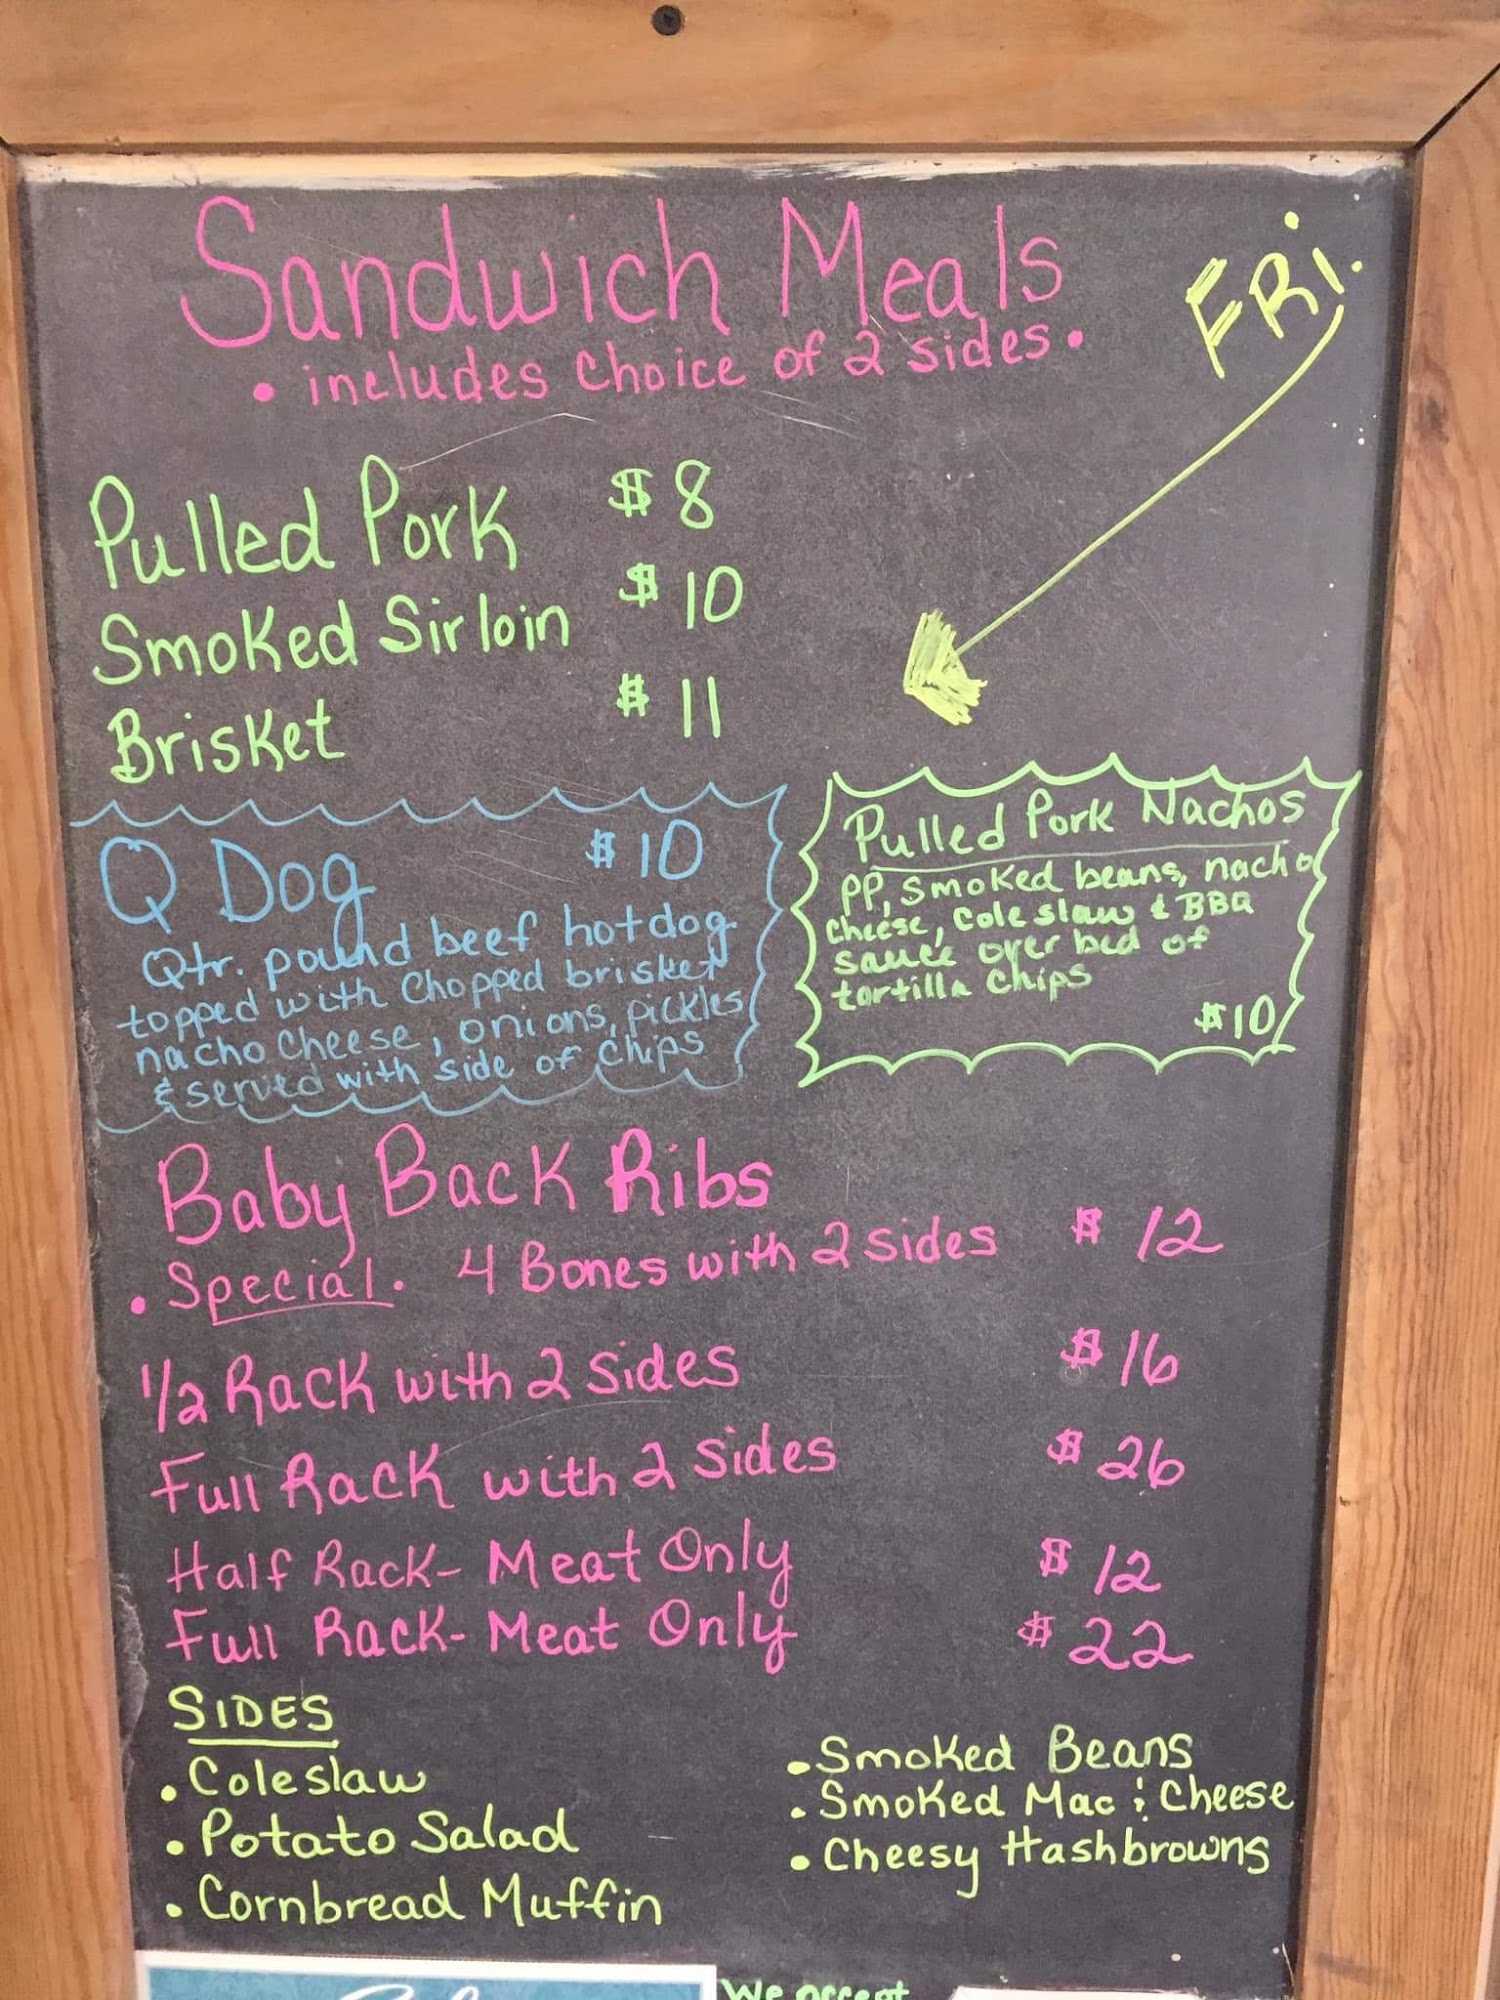 Sandwich Meals
• includes choice of 2 sides •
FRi.
Pulled Pork $8
Smoked Sirloin $10
Brisket $11
Q Dog $10
Qtr. pound beef hotdog
topped with chopped brisket
nacho cheese, onions, pickles
& served with side of chips
Pulled Pork Nachos
PP, smoked beans, nacho
cheese, cole slaw & BBQ
sauce over bed of
tortilla chips
$10
Baby Back Ribs
• Special. 4 Bones with 2 sides $12
1/2 Rack with 2 sides $16
Full Rack with 2 sides $26
Half Rack - Meat Only $12
Full Rack - Meat Only $22
SIDES
• Coleslaw
• Potato Salad
• Cornbread Muffin
• Smoked Beans
• Smoked Mac & Cheese
• Cheesy Hashbrowns
We accept